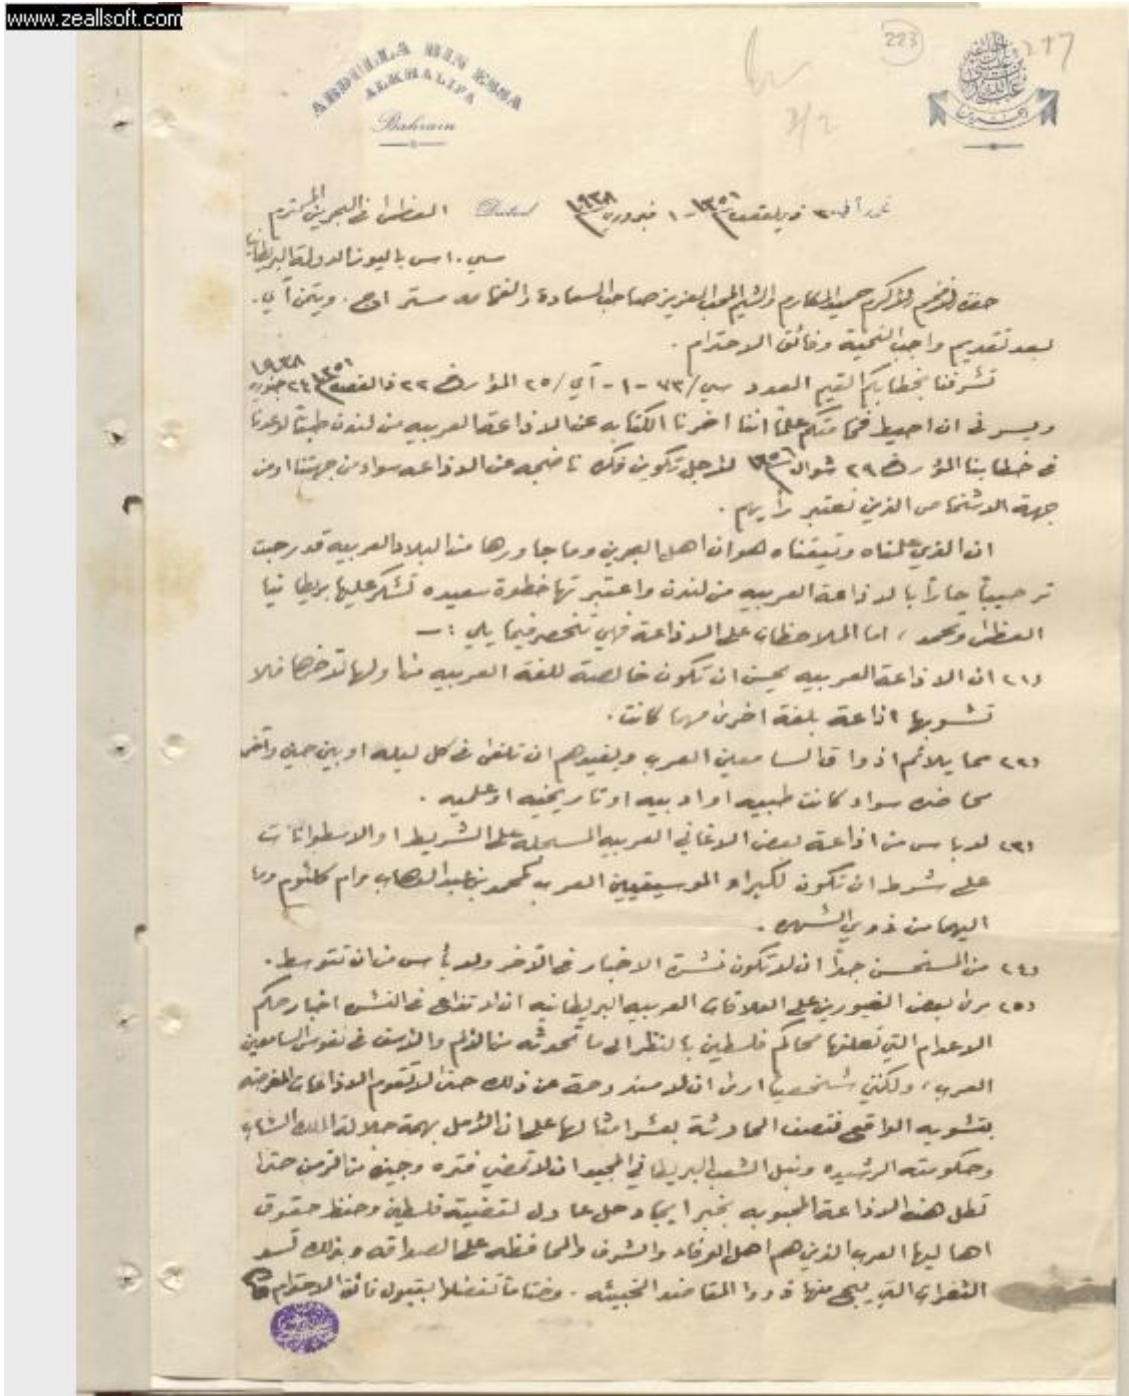 www.zeallsoft.com
223
217
ABDULLA BIN ESSA
ALKHALIFA
Bahrain
3/2
Dated
٣٠ ذي القعدة ١٣٥٦ - ١ فبروري ١٩٣٨
العظمى في البحرين المحترم
سي. اس باليوز الدولة البريطانية
حضرة الافخم الاكرم حميد المكارم والشيم المحب العزيز صاحب السعادة والفخامه مستر . ويتمن آي.
بعد تقديم واجب التحية وفائق الاحترام.
تشرفنا بخطابكم القيم العدد سي/٧٣ -١- آي/٢٥ المؤرخ ٢٢ ذالقعده ١٣٥٦ ٢٤ جنوري ١٩٣٨
ويسرني ان احيط فخامتكم علماً اننا اخرنا الكتابه عن الاذاعة العربيه من لندن طبقاً لوعدنا
في خطابنا المؤرخ ٢٩ شوال ١٣٥٦ لأجل تكوين فكرة ناضجه عن الاذاعه سواء من جهتنا او من
جهة الاشخاص الذين نعتبر رأيهم.
ان الذي علمناه وتيقناه هو ان اهل البحرين وما جاورها من البلاد العربيه قد رحبت
ترحيباً حاراً بالاذاعة العربيه من لندن واعتبرتها خطوة سعيده تشكر عليها بريطانيا
العظمى وتحمد، اما الملاحظات على الاذاعة فهي تنحصر فيما يلي :ـ
(١) ان الاذاعة العربيه يحسن ان تكون خالصة للغة العربيه من اولها لآخرها فلا
تشوبها اذاعة بلغة اخرى مهما كانت.
(٢) مما يلائم اذواق السامعين العرب ويفيدهم ان تلقى في كل ليله او بين حين وآخر
محاضره سواء كانت طبيه او ادبيه او تاريخيه او علميه.
(٣) لا باس من اذاعة بعض الاغاني العربيه المسجله على الشريط او الاسطوانات
على شرط ان تكون لكبراء الموسيقيين العرب كمحمد بن عبد الوهاب وام كلثوم وما
اليهما من ذوي الشهره.
(٤) من المستحسن جداً ان لا تكون نشرة الاخبار في الآخر ولا بأس من ان تتوسط.
(٥) يرى بعض الغيورين على العلاقات العربيه البريطانيه ان لا تذاع في النشره اخبار حكم
الاعدام التي تعلنها محاكم فلسطين بالنظر الى ما تحدثه من الألم والأسف في نفوس السامعين
العرب، ولكنني شخصياً ارى ان لا مندوحة عن ذلك حتى لا تقوم الاذاعات المغرضه
بتشويه الواقع فتصف الحادثة بعشر امثالها على ان الأمل بهمة جلالة الملك الشاب
وحكومته الرشيده ونبل الشعب البريطاني المجيد ان لا تمضي فتره وجيزه من الزمن حتى
تطل هذه الاذاعة المحبوبه بخبر ايجاد حل عادل لقضية فلسطين وحفظ حقوق
اهاليها العرب الذين هم اهل الوفاء والشرف والمحافظه على الصداقه وبذلك تسد
الثغرات التي يلج منها ذووا المقاصد الخبيثه. وختاماً تفضلوا بقبول فائق الاحترام